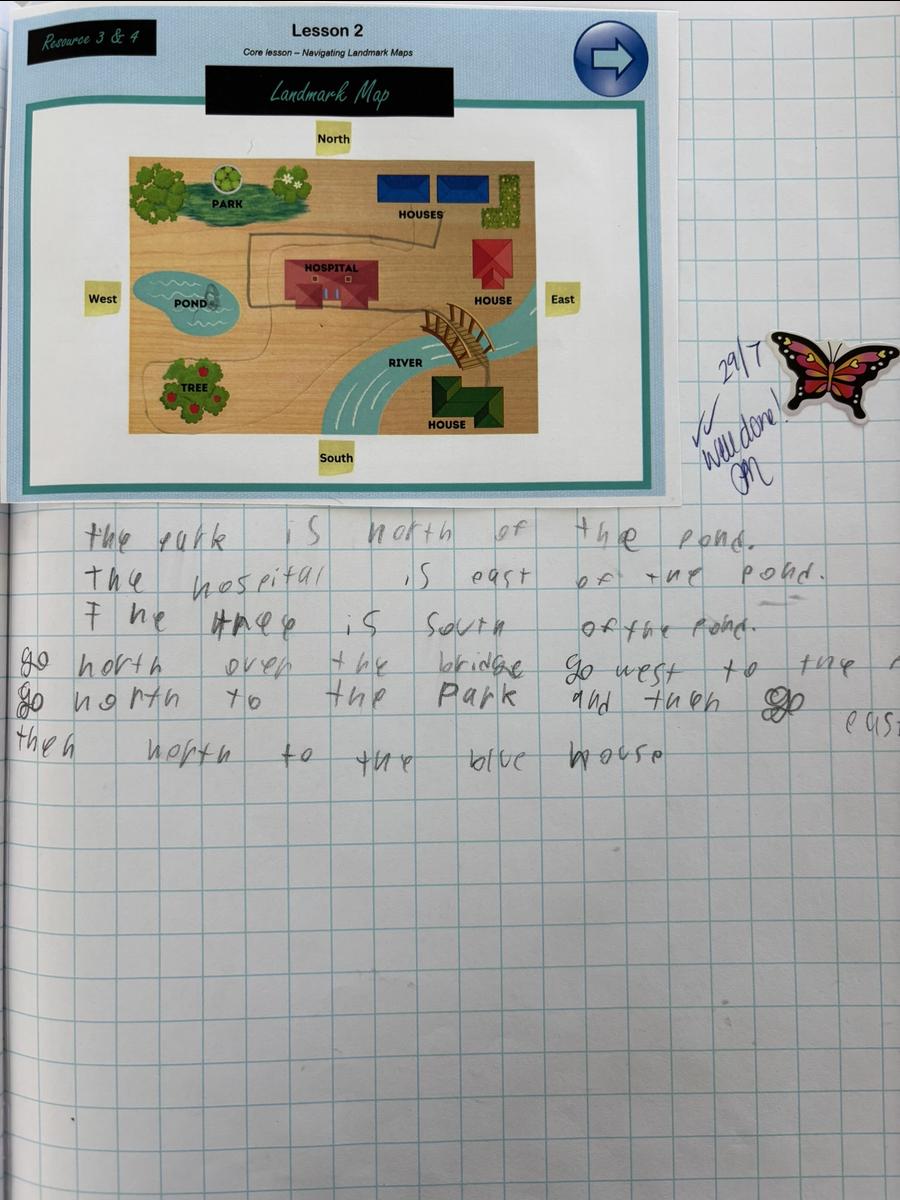 Resource 3 & 4
Lesson 2
Core lesson – Navigating Landmark Maps
Landmark Map
North
PARK
HOUSES
HOSPITAL
West
POND
HOUSE
East
RIVER
TREE
HOUSE
South
29/7
Well done!
the park is north of the pond.
the hospital is east of the pond.
The tree is south of the pond.
go north over the bridge go west to the
go north to the Park and then go
east
then north to the blue house